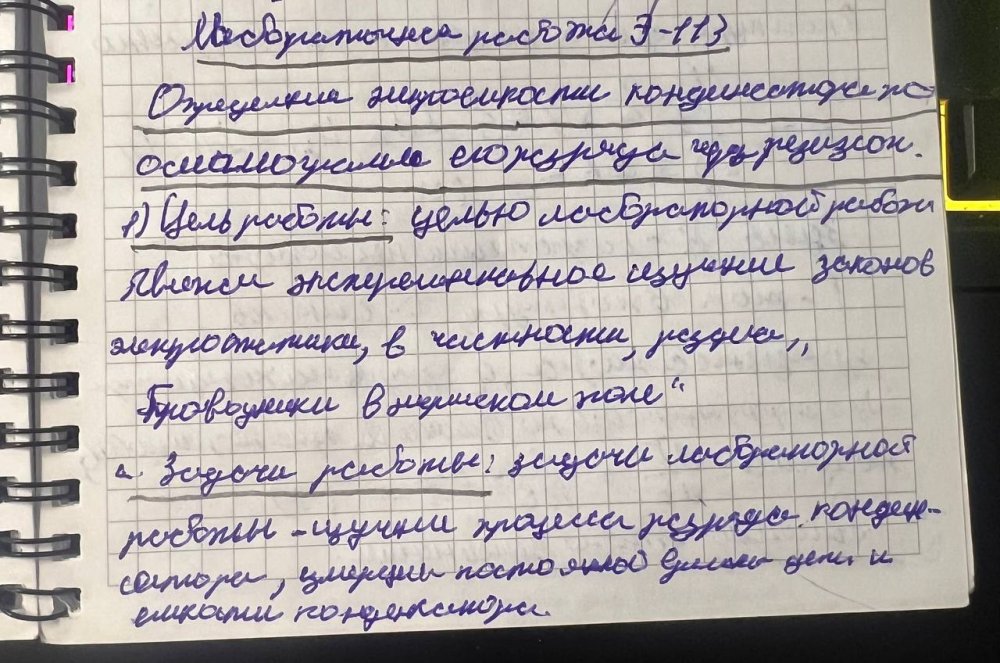 Лабораторная работа Э-113
Определение электроемкости конденсатора по
осциллограмме его разряда через резистор.
1) Цель работы: целью лабораторной работы
является экспериментальное изучение законов
электростатики, в частности, раздела „
Проводники в внешнем поле“
2. Задачи работы: задачи лабораторной
работы - изучение процесса разряда конден-
сатора, измерение постоянной времени цепи и
емкости конденсатора.